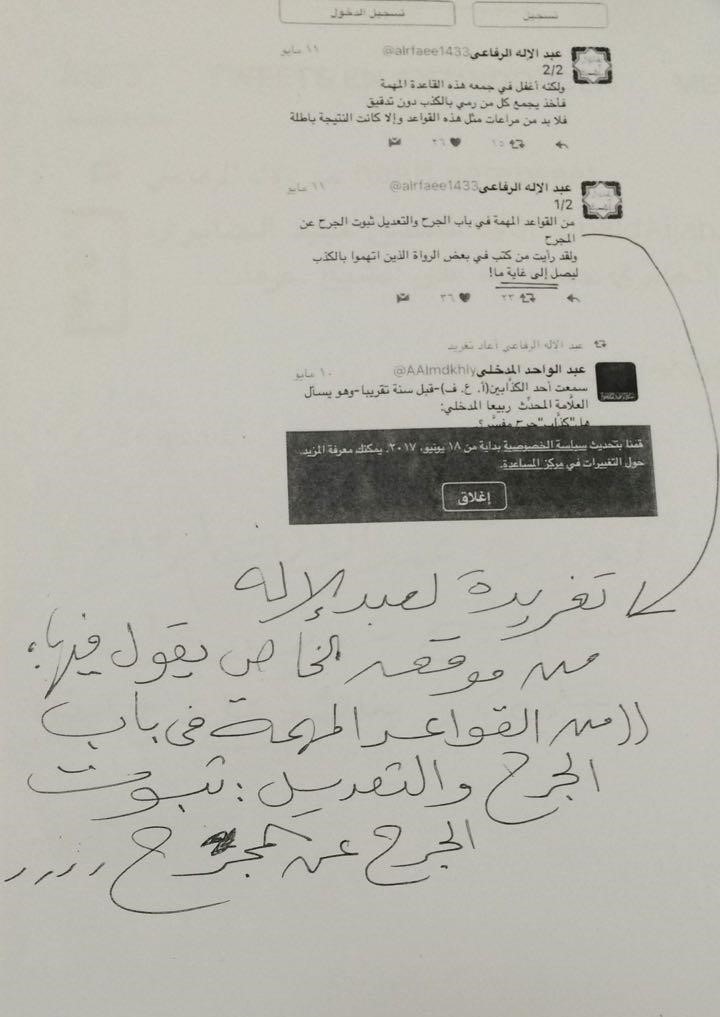 تسجيل
تسجيل الدخول
عبد الإله الرفاعي @alrfaee1433 ١١ مايو
2/2
ولكنه أغفل في جمعه هذه القاعدة المهمة
فأخذ يجمع كل من رمي بالكذب دون تدقيق
فلا بد من مراعات مثل هذه القواعد وإلا كانت النتيجة باطلة
١٥ ٢٦
عبد الإله الرفاعي @alrfaee1433 ١١ مايو
1/2
من القواعد المهمة في باب الجرح والتعديل ثبوت الجرح عن
المجرح
ولقد رأيت من كتب في بعض الرواة الذين اتهموا بالكذب
ليصل إلى غاية ما!
٢٣ ٣٦
عبد الاله الرفاعي أعاد تغريد
عبد الواحد المدخلي @AAlmdkhly ١٠ مايو
سمعت أحد الكذَّابين(أ. ع. ف)-قبل سنة تقريبا-وهو يسأل
العلَّامة المحدِّث ربيعا المدخلي:
هل"كذَّاب"جرح مفسَّر؟
قمنا بتحديث سياسة الخصوصية بداية من ١٨ يونيو، ٢٠١٧. يمكنك معرفة المزيد
حول التغييرات في مركز المساعدة.
إغلاق
تغريدة لعبد الإله
من موقعه الخاص يقول فيها:
((من القواعد المهمة في باب
الجرح والتعديل: ثبوت
الجرح عن المجرح ,,,,